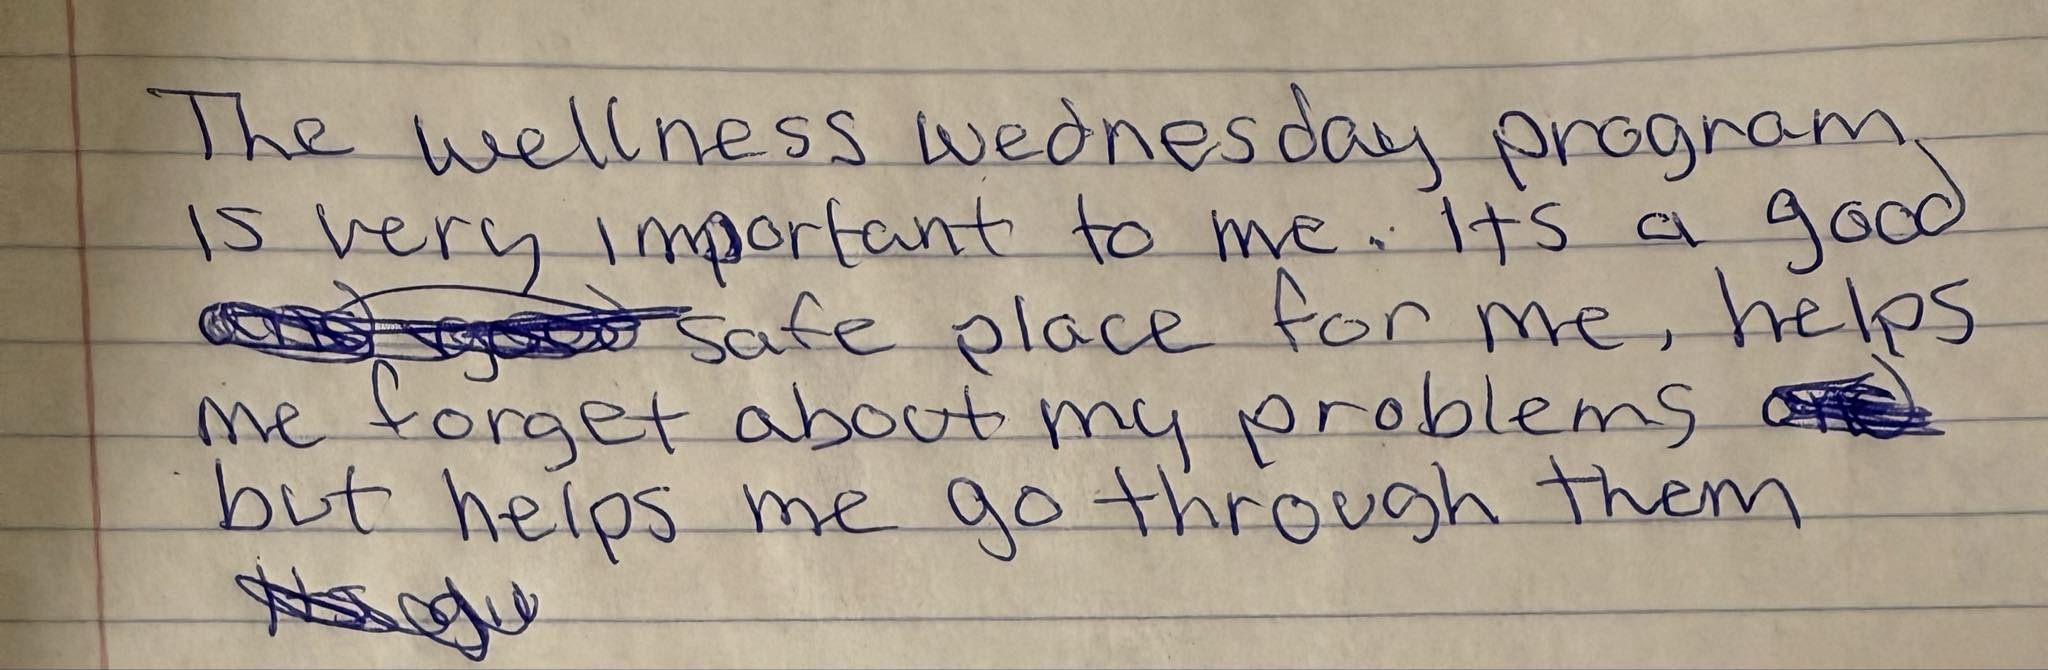 The wellness wednesday program
is very important to me. Its a good
safe place for me, helps
me forget about my problems
but helps me go through them